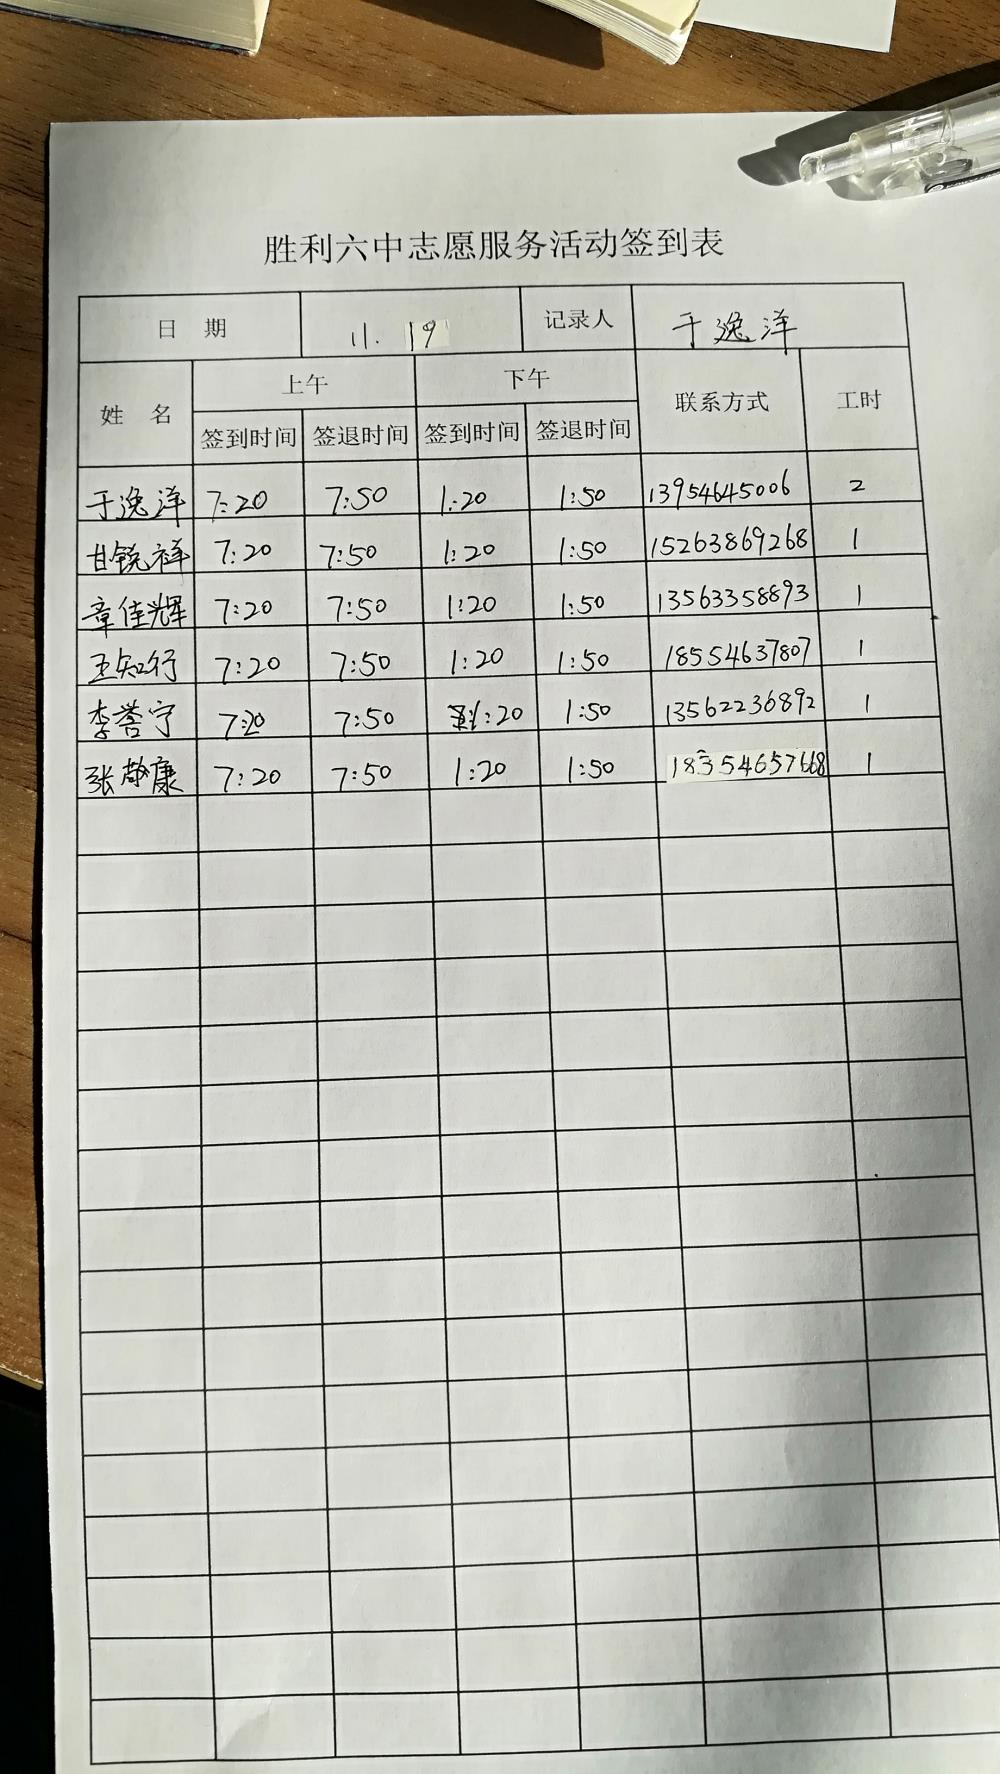 胜利六中志愿服务活动签到表
日 期 11. 19 记录人 于逸洋
姓 名 上午 下午 联系方式 工时
签到时间 签退时间 签到时间 签退时间
于逸洋 7:20 7:50 1:20 1:50 13954645006 2
甘锐祥 7:20 7:50 1:20 1:50 15263869268 1
章佳辉 7:20 7:50 1:20 1:50 13563358893 1
王知行 7:20 7:50 1:20 1:50 18554637807 1
李誉宁 7:20 7:50 1:20 1:50 13562236892 1
张静康 7:20 7:50 1:20 1:50 18354657668 1